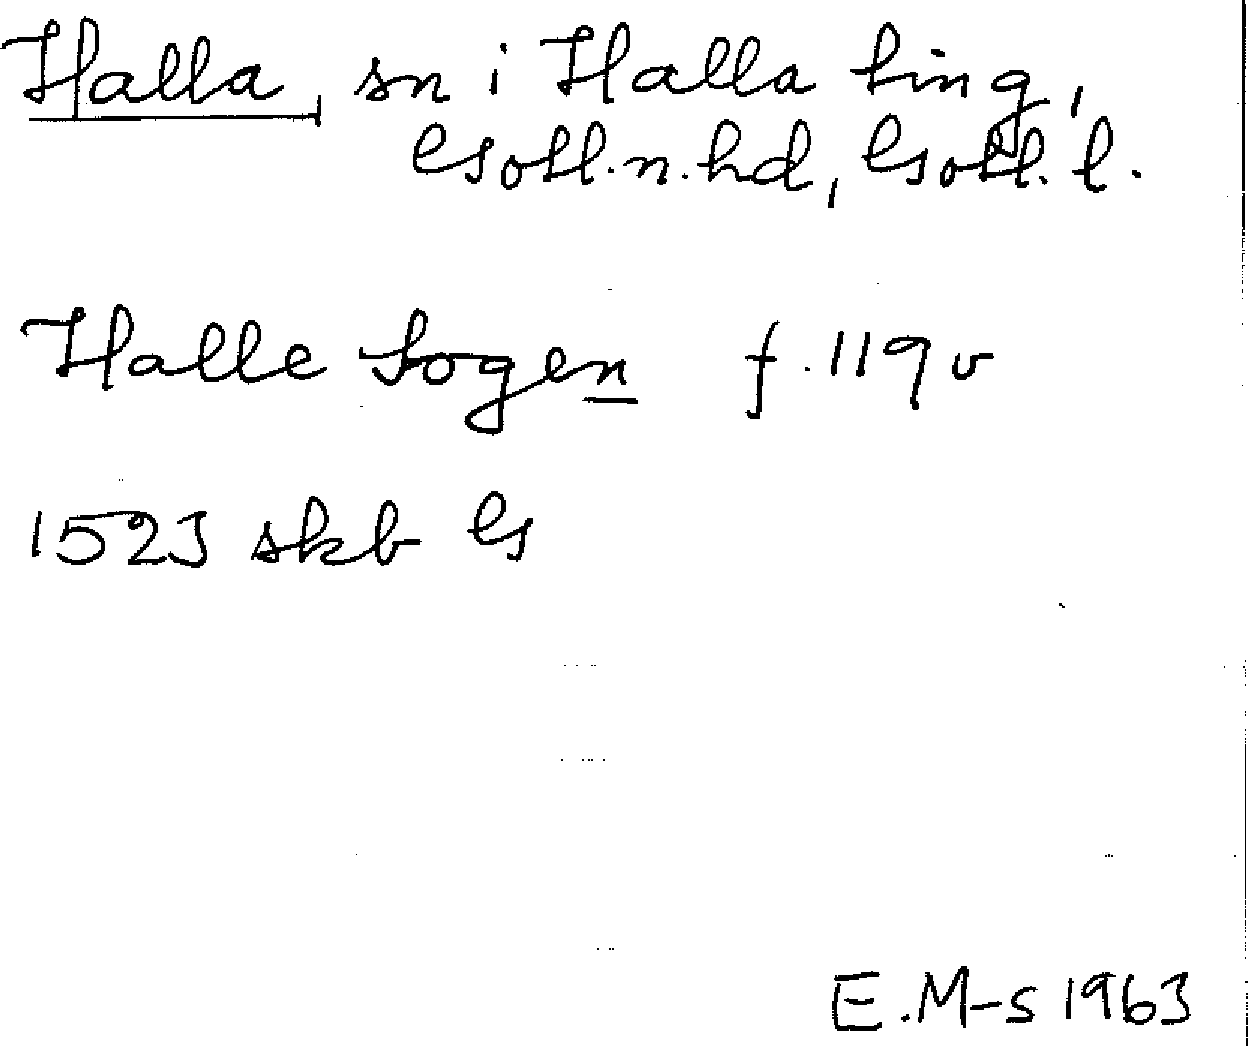 Halla, sn i Halla ting,
Gotl.n.hd, Gotl. l.
Halle sogen f. 119 v
1523 skb G
E.M-s 1963